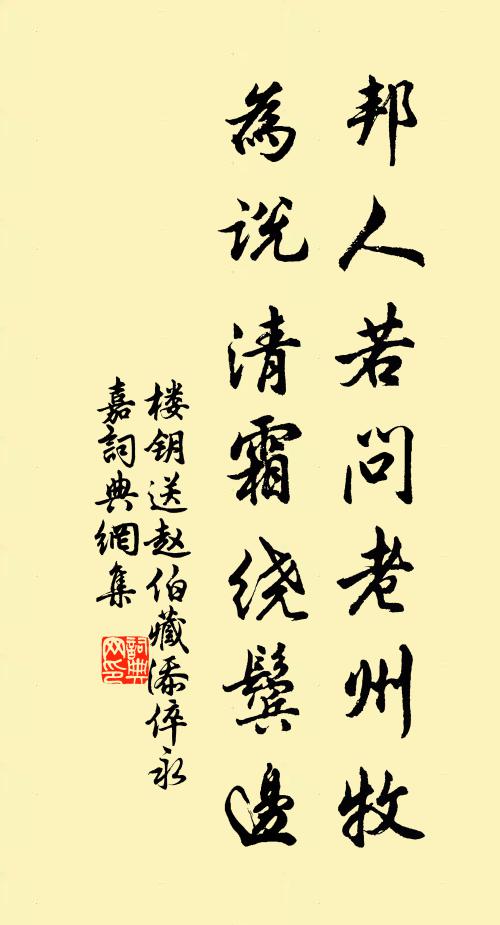 邦人若问老州牧
為说清霜绕鬓邊
楼钥送赵伯藏添倅永
嘉詞典網集
詞典
网印